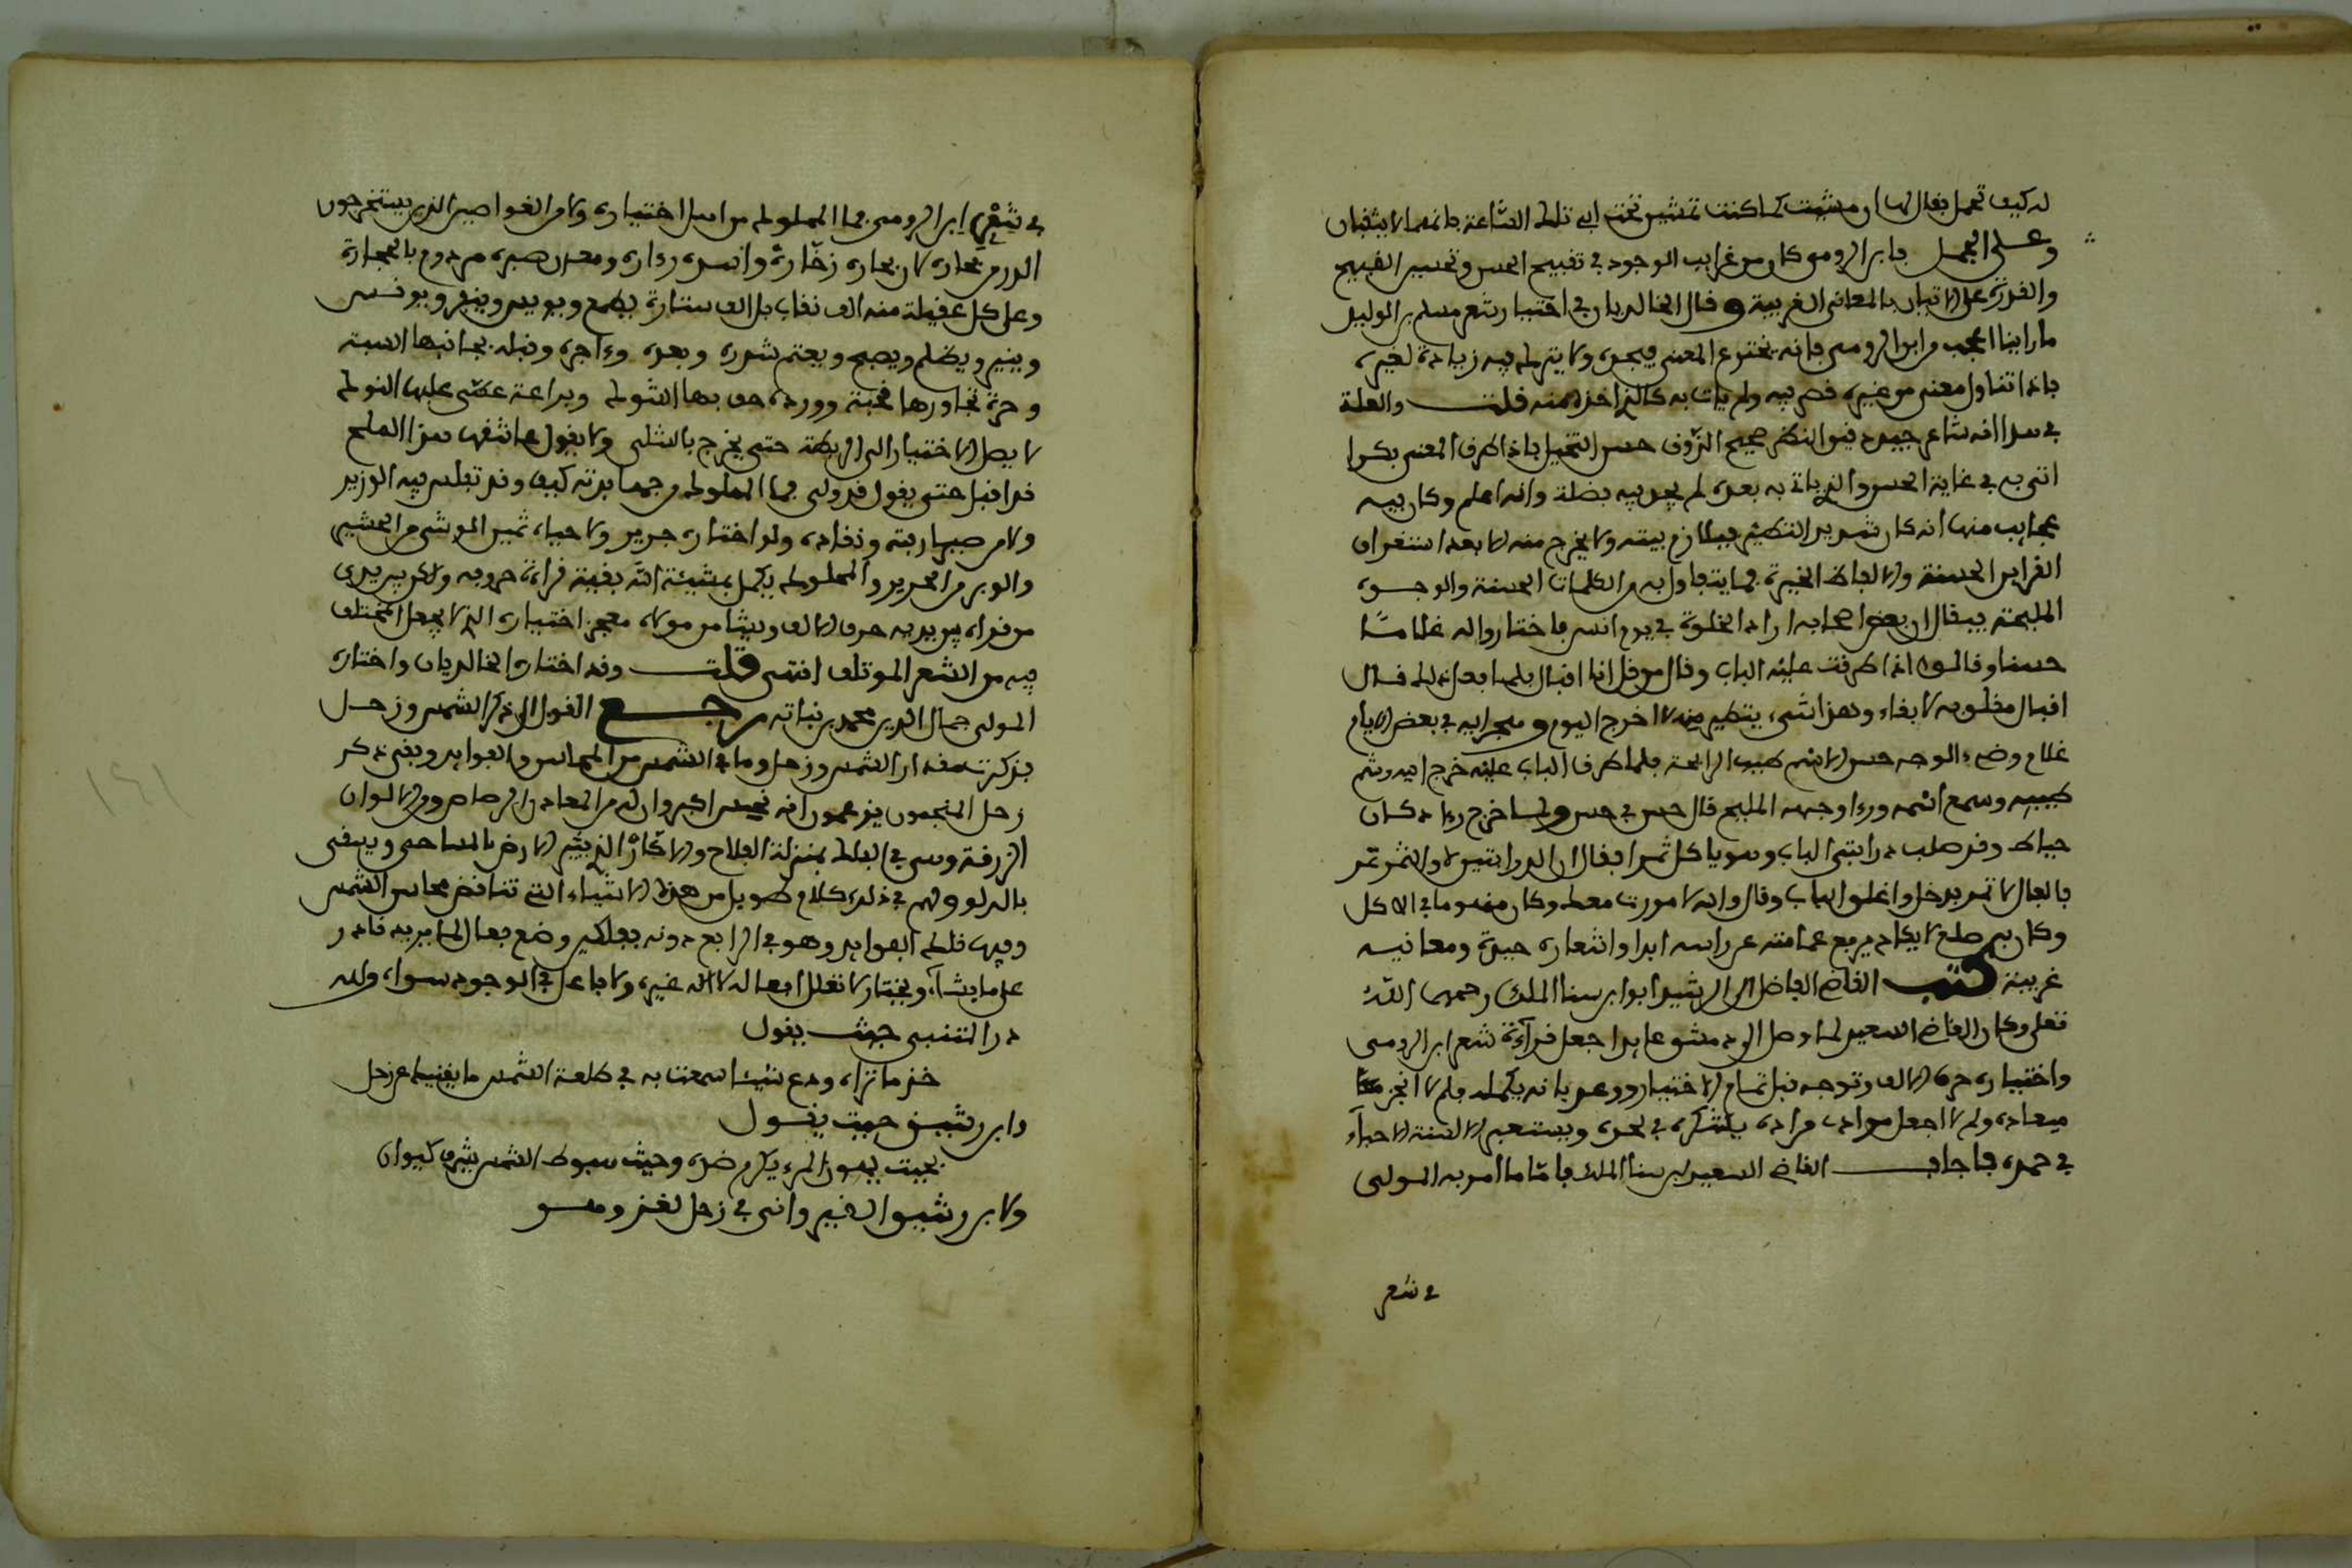 له كيف تحمل فقال لها ان مشيت كما كنت تمشين تحت ابي تلك الساعة فانهما لا يثقبان
وعلى الجمل فابن الرومي كان من غرايب الوجود في تقبيح الحسن وتحسين القبيح
والقدرة على الاتيان بالمعاني الغريبة وقال الخالديان في اختيار شعر مسلم بن الوليد
ما راينا اعجب من ابن الرومي فانه يخترع المعنى فيجوده ولا يترك فيه زيادة لغيره
فاذا تناول معنى من غيره قصر فيه ولم يات به كالذي اخذه منه قلت والعلة
في هذا انه شاعر جيد دقيق النظر صحيح الذوق حسن التخيل فاذا طرق المعنى بكرا
اتى به في غاية الحسن والذي ياتي به بعده لم يجد فيه فضلة والله اعلم وكان فيه
عجايب منها انه كان شديد التطير فيلازم بيته ولا يخرج منه الا بعد استقراء
القراين الحسنة والالفاظ الخيرة مما يتفاول به من الكلمات الحسنة والوجوه
المليحة فيقال ان بعض اصحابه اراد الخلوة في يوم انس فاختاروا له غلاما
حسنا وقالوا اذا طرقت عليه الباب وقال من قل انا اقبال فلما فعل ذلك قال
اقبال مقلوبه لا بقاء وهذا شيء يتطير منه لا اخرج اليوم وسجرابيه في بعض الايام
غلام وضيء الوجه حسن الاسم طيب الرايحة فلما طرق الباب عليه خرج اليه وشم
طيبه وسمع اسمه ورءا وجهه المليح قال حسن في حسن ولما خرج رءا دكان
خياط وقد صلب درابتي الباب وهو ياكل تمرا فقال ان الدرابتين لا والتمر تمر
بالفال لا تمر فدخل واغلق الباب وقال والله لا مورت معك وكان منهوما في الاكل
وكان به صلع لا يكاد يرفع عمامته عن راسه ابدا واشعاره جيدة ومعانيه
غريبة كتب القاضي الفاضل الى الرشيد ابو ابن سنا الملك رحمهما الله
تعلى وكان القاضي السعيد لما وصل الى دمشق عابدا جعل قراءة شعر ابن الرومي
واختياره حرفا الالف وتوجه قبل تمام الاختيار ووعد بانه يكمله فلم لا انجز
ميعاده ولم لا اجعل موادي مراده يشكره في لحده ويستعير الالسنة الاحياء
في حمده فاجاب القاضي السعيد بن سنا الملك فاما ما امر به المولى
في شعر
في شعر ابن الرومي فما المملوك من اهل اختياره ولا من الغواصين الذين يستخرجون
الدر من بحاره لان بحاره زخارة واسوده زءارة ومعدن صبره مردوم بالحجارة
وعلى كل عقيلة منه الف نقاب بل الف ستارة يطمع ويويس وينفر ويونس
وينير ويظلم ويصبح ويعتم شذره وبعره وءاجره وقبله بجانبها السبه
وحرة تجاورها قحبة ووردة حف بها الشوك وبراعة غشى عليها النوك
لا يصل الاختيار الى الرطبة حتى يخرج بالشلى ولا يقول عاشقها هذا الملح
قد اقبل حتى يقول قد ولى فما المملوك من جهابذته كيف وقد تفلس فيه الوزير
ولا من صيارفته ونقاده ولو اختاره جرير ولا حياء تميز الموشى من الحشير
والوبر من الحرير والمملوك يكمل بمشيئة الله بقية قراءة حروفه ولاكن بين يدي
من قراء بين يديه حرف الالف وبيتا من مولاه معجز اختياره الذي لا يجعل المختلف
فيه من الشعر الموتلف انتهى قلت وقد اختاره الخالديان واختاره
المولى جمال الدين محمد بن نباته رجع القول الى ذكر الشمس وزحل
فذكرت مقدار الشمس وزحل وما في الشمس من المحاسن والفوايد وبقي ذكر
زحل المنجمون يزعمون انه نحس اكبر وان له من المعادن الرصاص ومن الالوان
الزرقة وهي في الفلك بمنزلة الفلاح والاكار الذي يثير الارض بالمساحي ويسقى
بالدلو ولهم في ذلك كلام طويل من هذه الاشياء التي تناقض محاسن الشمس
وفيها فلك الفوايد وهو في الرابع دونه بفلكين وضع فعال لما يريد قادر
على ما يشاء ويختار لا تعلل افعاله لا اله غيره ولا فاعل في الوجود سواه ولله
در المتنبي حيث يقول
خذ ما تراه ودع شيئا سمعت به في طلعة الشمس ما يغنيك عن زحل
وابن رشيق حيث يقول
بحيث يهون المرء يكرم ضده وحيث هبوط الشمس يشرف كيوان
ولابن رشيق القير واني في زحل لغز وهو